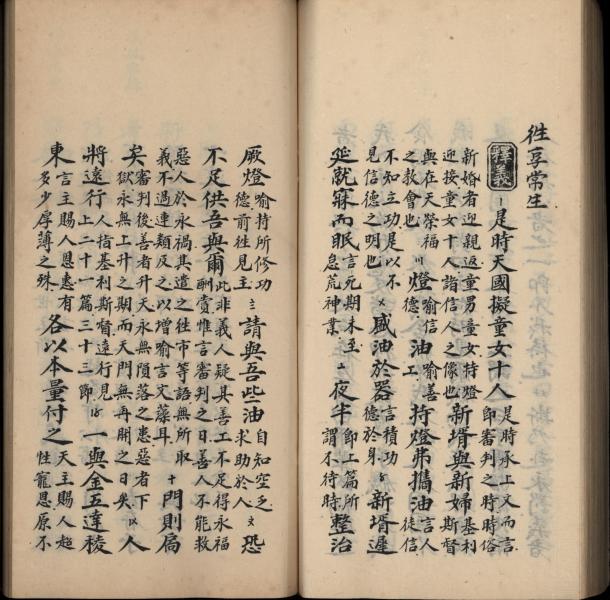 徃享常生
釋義 是時天國擬童女十人 是時承上文而言 即審判之時時俗
新婚者迎親返童男童女持燈 迎接童女十人諸信人之像也 新壻與新婦 基利 斯督
與在天榮福 之教會也 燈 喻信 德 油 喻善 工 持燈弗攜油 言人 徒信
不知立功是以不 見信德之明也 盛油於器 言積功 德於身 新壻遲
延就寐而眠 言死期未至 怠荒神業 夜半 即上篇所 謂不待時 整治
厥燈 喻持所修功 德前徃見主 請與吾些油 自知空乏 求助於人 恐
不足供吾與爾 此非義人疑其善工不足得永福 酬賞惟言審判之日善人不能救
惡人於永禍其遣之徃市等語無所取 義不過連類及之以增喻言文藻耳 十 門則扃
矣 審判後善者升天永無隕落之患惡者下 獄永無上升之期而天門無再開之日矣 人
將遠行 人指基利斯督遠行見 上二十一篇三十三節 一與金五達稜
東 言主賜人恩惠有 多少厚薄之殊 各以本量付之 天主賜人超 性寵恩原不